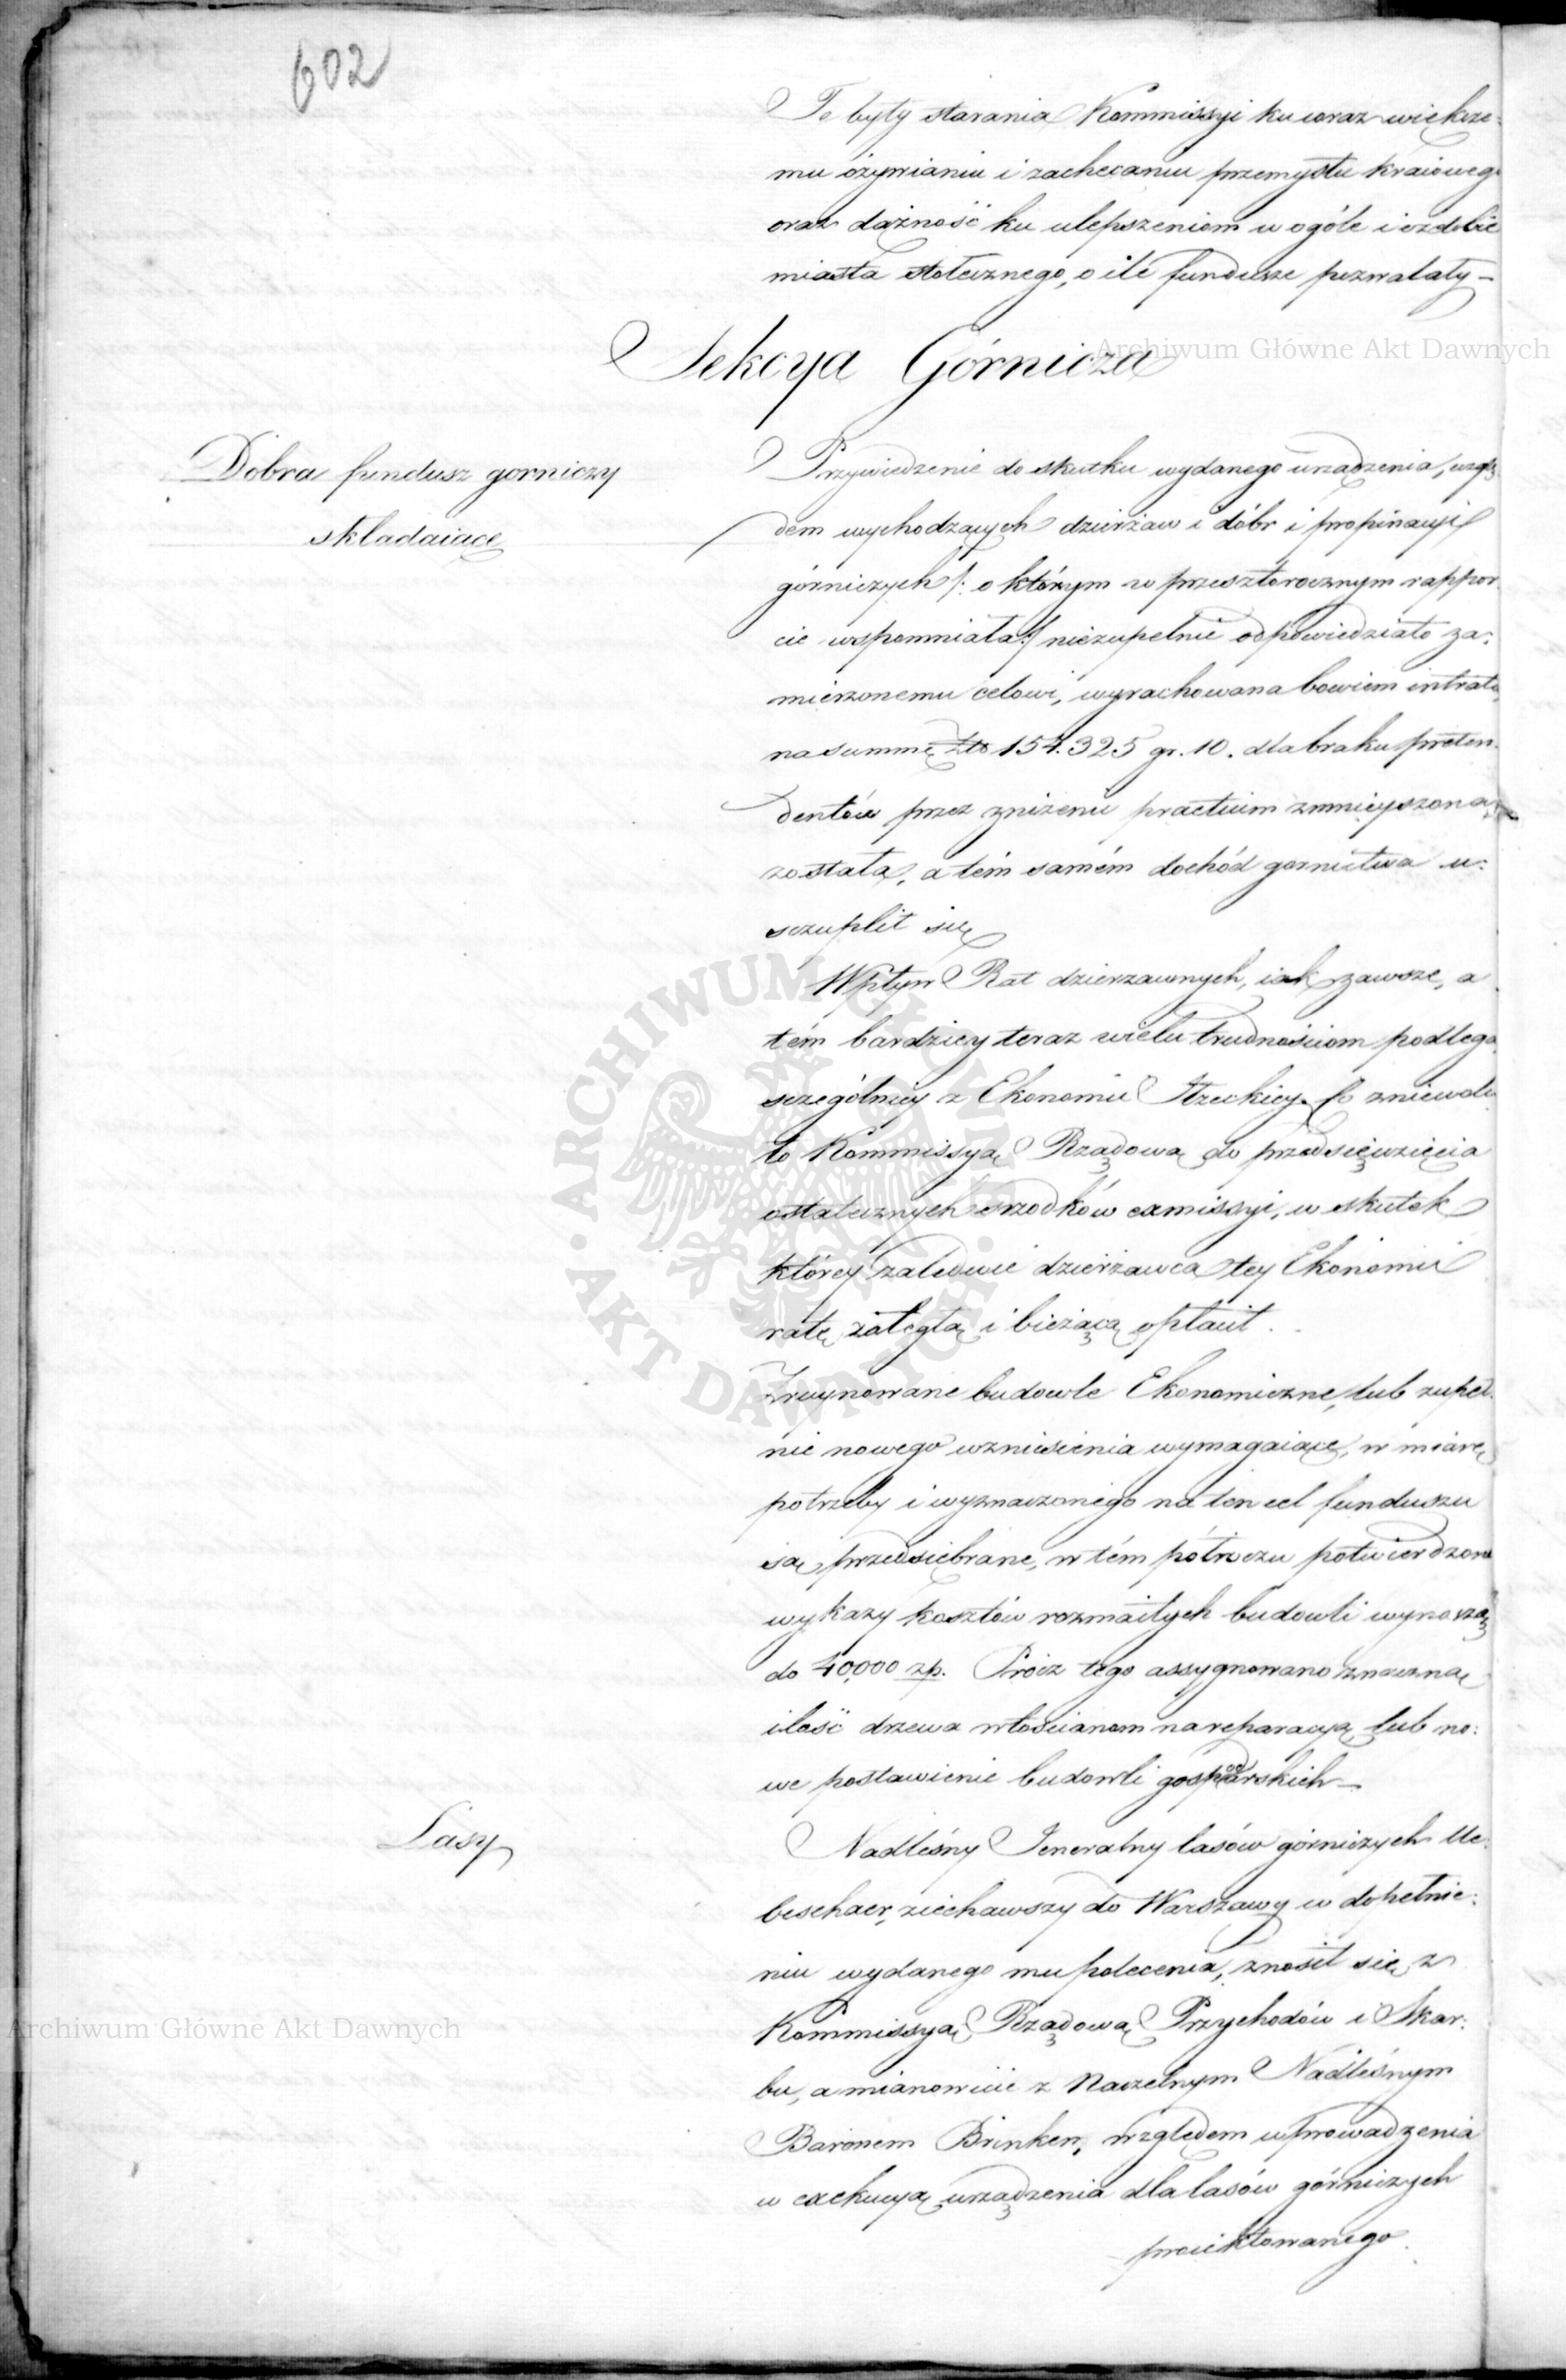 602
Te były starania Kommissyi ku coraz większe:
mu ożywianiu i zachęcaniu przemysłu kraiowego
oraz dążność ku ulepszeniom w ogóle i ozdobie
miasta stołecznego, o ile fundusze pozwalały –
Sekcya Górnicza
Dobra fundusz gorniczy
składaiące
Przywiedzenie do skutku wydanego urządzenia, wzglę
dem wychodzących dzierżaw i dóbr i propinacyi
górniczych /: o którym w przeszłorocznym rappor
cie wspomniała :/ niezupełnie odpowiedziało za:
mierzonemu celowi, wyrachowana bowiem intrata
na summę Złto 154.325 gr. 10. dla braku preten
dentów przez zniżenie practium zmnieyszona
została, a tém samém dochód gornictwa u:
szczuplił się
Wpływ Rat dzierzawnych, iak zawsze, a
tém bardziey teraz wielu trudnościom podlega
szczególniey z Ekonomii Rzeckiey. zniewoli
to Kommissyą Rządową do przedsięwzięcia
ostatecznych srzodków exmissyi, w skutek
którey zaledwie dzierżawca tey Ekonomii
ratę zaległą i bieżącą opłacił.
Zruynowane budowle Ekonomiczne, lub zupeł:
nie nowego wzniesienia wymagaiące, w miarę
potrzeby i wyznaczonego na ten cel funduszu
są przedsiębrane, w tém półroczu potwierdzone
wykazy kosztów rozmaitych budowli wynoszą
do 40,000 zp. Prócz tego assygnowano znaczną
ilość drzewa włościanom na reparacyą lub no:
we postawienie budowli gospodarskich –
Lasy
Nadleśny Jeneralny lasów górniczych Ue:
beschaer, ziechawszy do Warszawy w dopełnie:
niu wydanego mu polecenia, znosił się z
Kommissyą Rządową Przychodów i Skar:
bu, a mianowicie z Naczelnym Nadleśnym
Baronem Brinken, względem wprowadzenia
w exekucyą urządzenia dla lasów górniczych
proiektowanego.
Archiwum Główne Akt Dawnych
ARCHIWUM GŁÓWNE · AKT DAWNYCH ·
Archiwum Główne Akt Dawnych